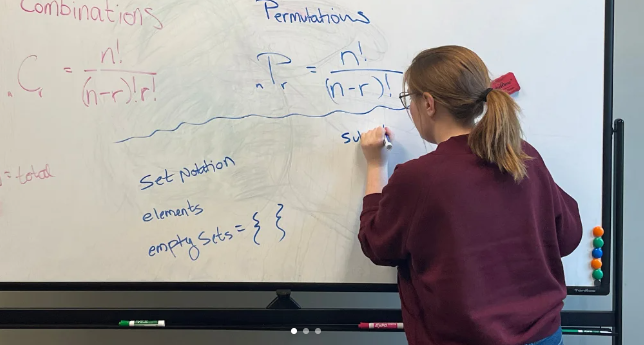 Combinations
Permutations
nCr = n! / (n-r)!r!
nPr = n! / (n-r)!
= total
Set Notation
elements
empty Sets = { }